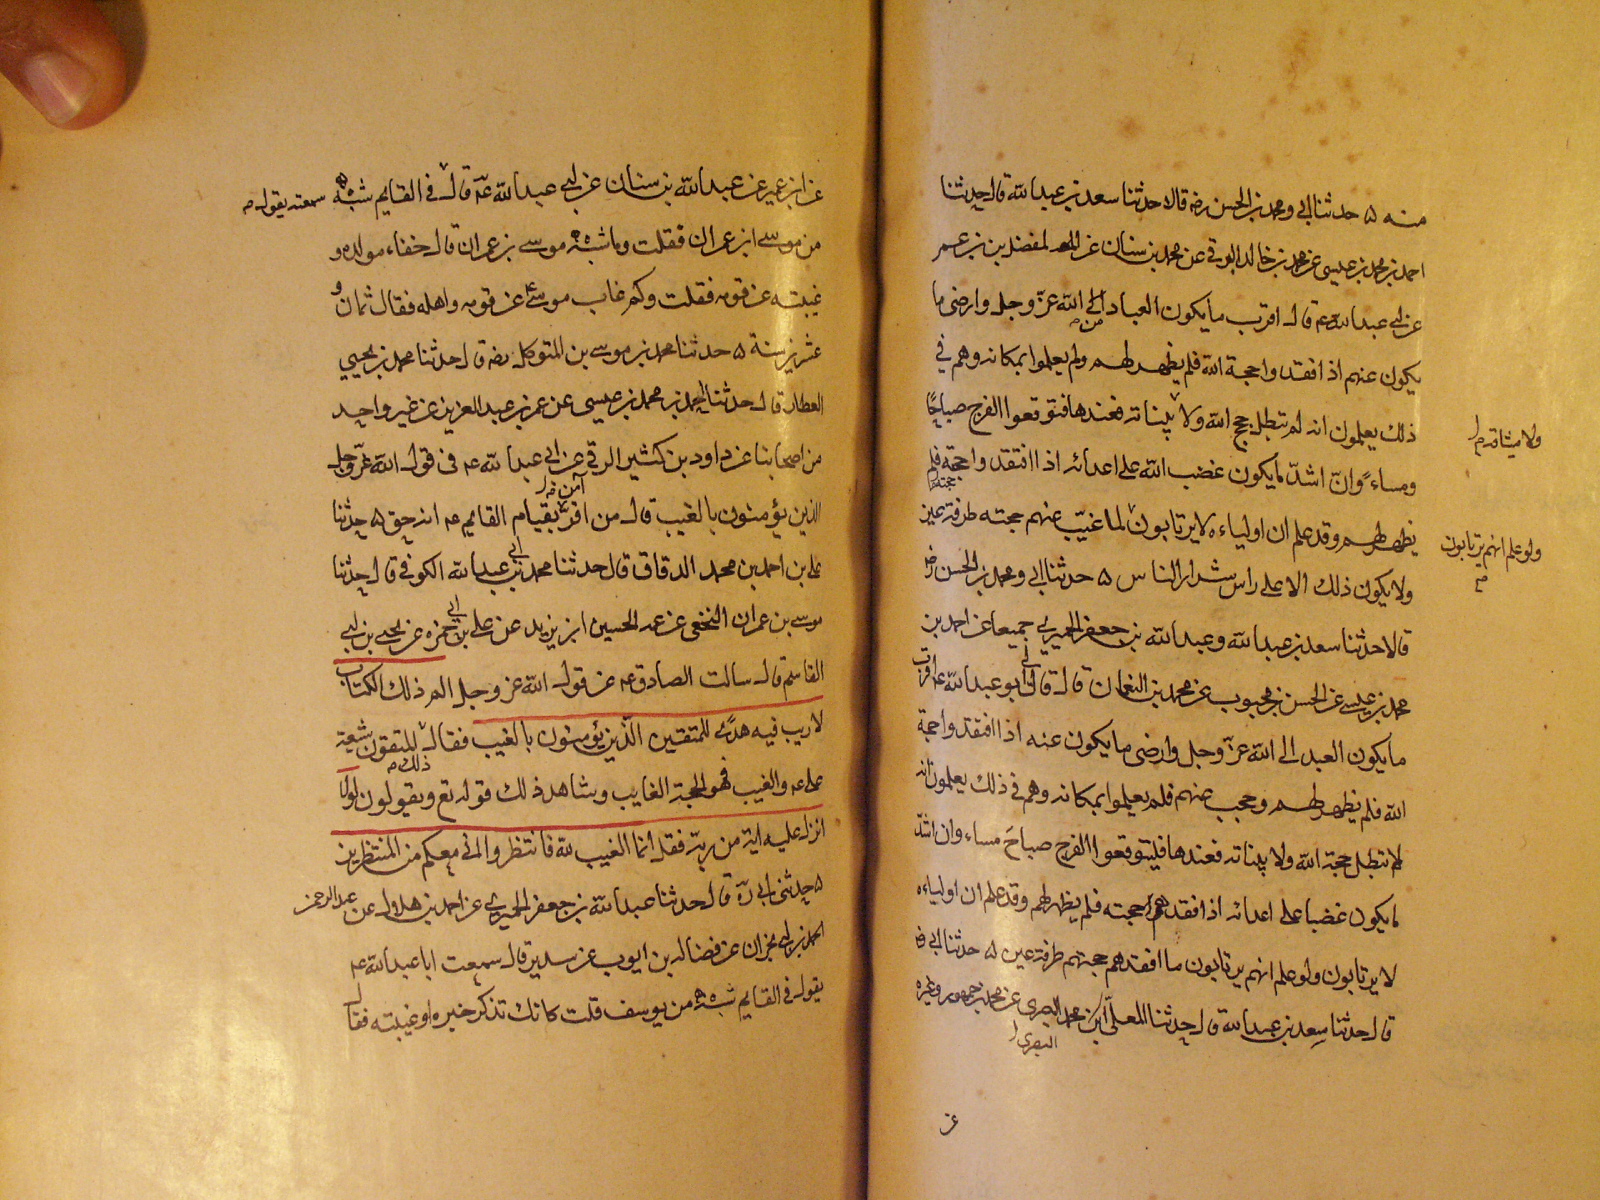 منه ۵ حدثنا ابي ومحمد بن الحسن رضه قالا حدثنا سعد بن عبد الله قال حدثنا
احمد بن محمد بن عيسى عن محمد بن خالد البرقي عن محمد بن سنان عن المفضل بن عمر
عن ابي عبد الله عه قال اقرب ما يكون العباد الى الله عز وجل وارضى ما
يكون عنهم اذا افتقدوا حجة الله فلم يظهر لهم ولم يعلموا بمكانه وهم في
ذلك يعلمون انه لم تبطل حجج الله ولا بيناته فعندها فتوقعوا الفرج صباحًا
ولا ميثاقه
ومساءً وانّ اشدّ ما يكون غضب الله على اعدائه اذا افتقدوا حجته فلم
يظهر لهم وقد علم ان اولياءه لا يرتابون لما غيّب عنهم حجته طرفة عين
ولو علم انهم يرتابون
ولا يكون ذلك الا على راس شرار الناس ۵ حدثنا ابي ومحمد بن الحسن رضه
قالا حدثنا سعد بن عبد الله وعبد الله بن جعفر الحميري جميعا عن احمد بن
محمد بن عيسى عن الحسن بن محبوب عن محمد بن النعمان قال قال لي ابو عبد الله عه اقرب
ما يكون العبد الى الله عزّ وجل وارضى ما يكون عنه اذا افتقدوا حجة
الله فلم يظهر لهم وحجب عنهم فلم يعلموا بمكانه وهم في ذلك يعلمون انه
لا تبطل حجة الله ولا بيناته فعندها فليتوقعوا الفرج صباحَ مساء وان اشدّ
ما يكون غضبا على اعدائه اذا افقدهم حجته فلم يظهر لهم وقد علم ان اولياءه
لا يرتابون ولو علم انهم يرتابون ما افقدهم حجتهم طرفة عين ۵ حدثنا ابي رضه
قال حدثنا سعد بن عبد الله قال حدثنا المعلّى بن محمد البصري عن محمد بن جمهور وغيره
البصري
عن
عن ابن عمير عن عبد الله بن سنان عن ابي عبد الله عه قال في القايم شبه
سمعته يقول
من موسى ابن عمران فقلت وما شبه موسى بن عمران قال خفاء مولده و
غيبته عن قومه فقلت وكم غاب موسى عن قومه واهله فقال ثمان و
عشرين سنة ۵ حدثنا محمد بن موسى بن المتوكل رضه قال حدثنا محمد بن يحيى
العطار قال حدثنا احمد بن محمد بن عيسى عن عمر بن عبد العزيز عن غير واحد
من اصحابنا عن داود بن كثير الرقي عن ابي عبد الله عه في قول الله عزّ وجل
آمن
الذين يؤمنون بالغيب قال من اقرّ بقيام القايم عه انه حق ۵ حدثنا
علي بن احمد بن محمد الدقاق قال حدثنا محمد بن ابي عبد الله الكوفي قال حدثنا
موسى بن عمران النخعي عن عمه الحسين ابن يزيد عن علي بن ابي حمزه عن يحيى بن ابي
القاسم قال سالت الصادق عه عن قول الله عز وجل الم ذلك الكتاب
لا ريب فيه هدًى للمتقين الذين يؤمنون بالغيب فقال المتقون شيعة
علي عه والغيب فهو الحجة الغايب وشاهد ذلك قوله تع ويقولون لولا
ذلك
انزل عليه اية من ربّه فقل انما الغيب لله فانتظروا اني معكم من المنتظرين
۵ حدثني ابي ره قال حدثنا عبد الله بن جعفر الحميري عن احمد بن هلال عن عبد الرحمن
احمد بن ابي نجران عن فضاله بن ايوب عن سدير قال سمعت ابا عبد الله عه
يقول في القايم شبه من يوسف قلت كانك تذكر خبره او غيبته فقال